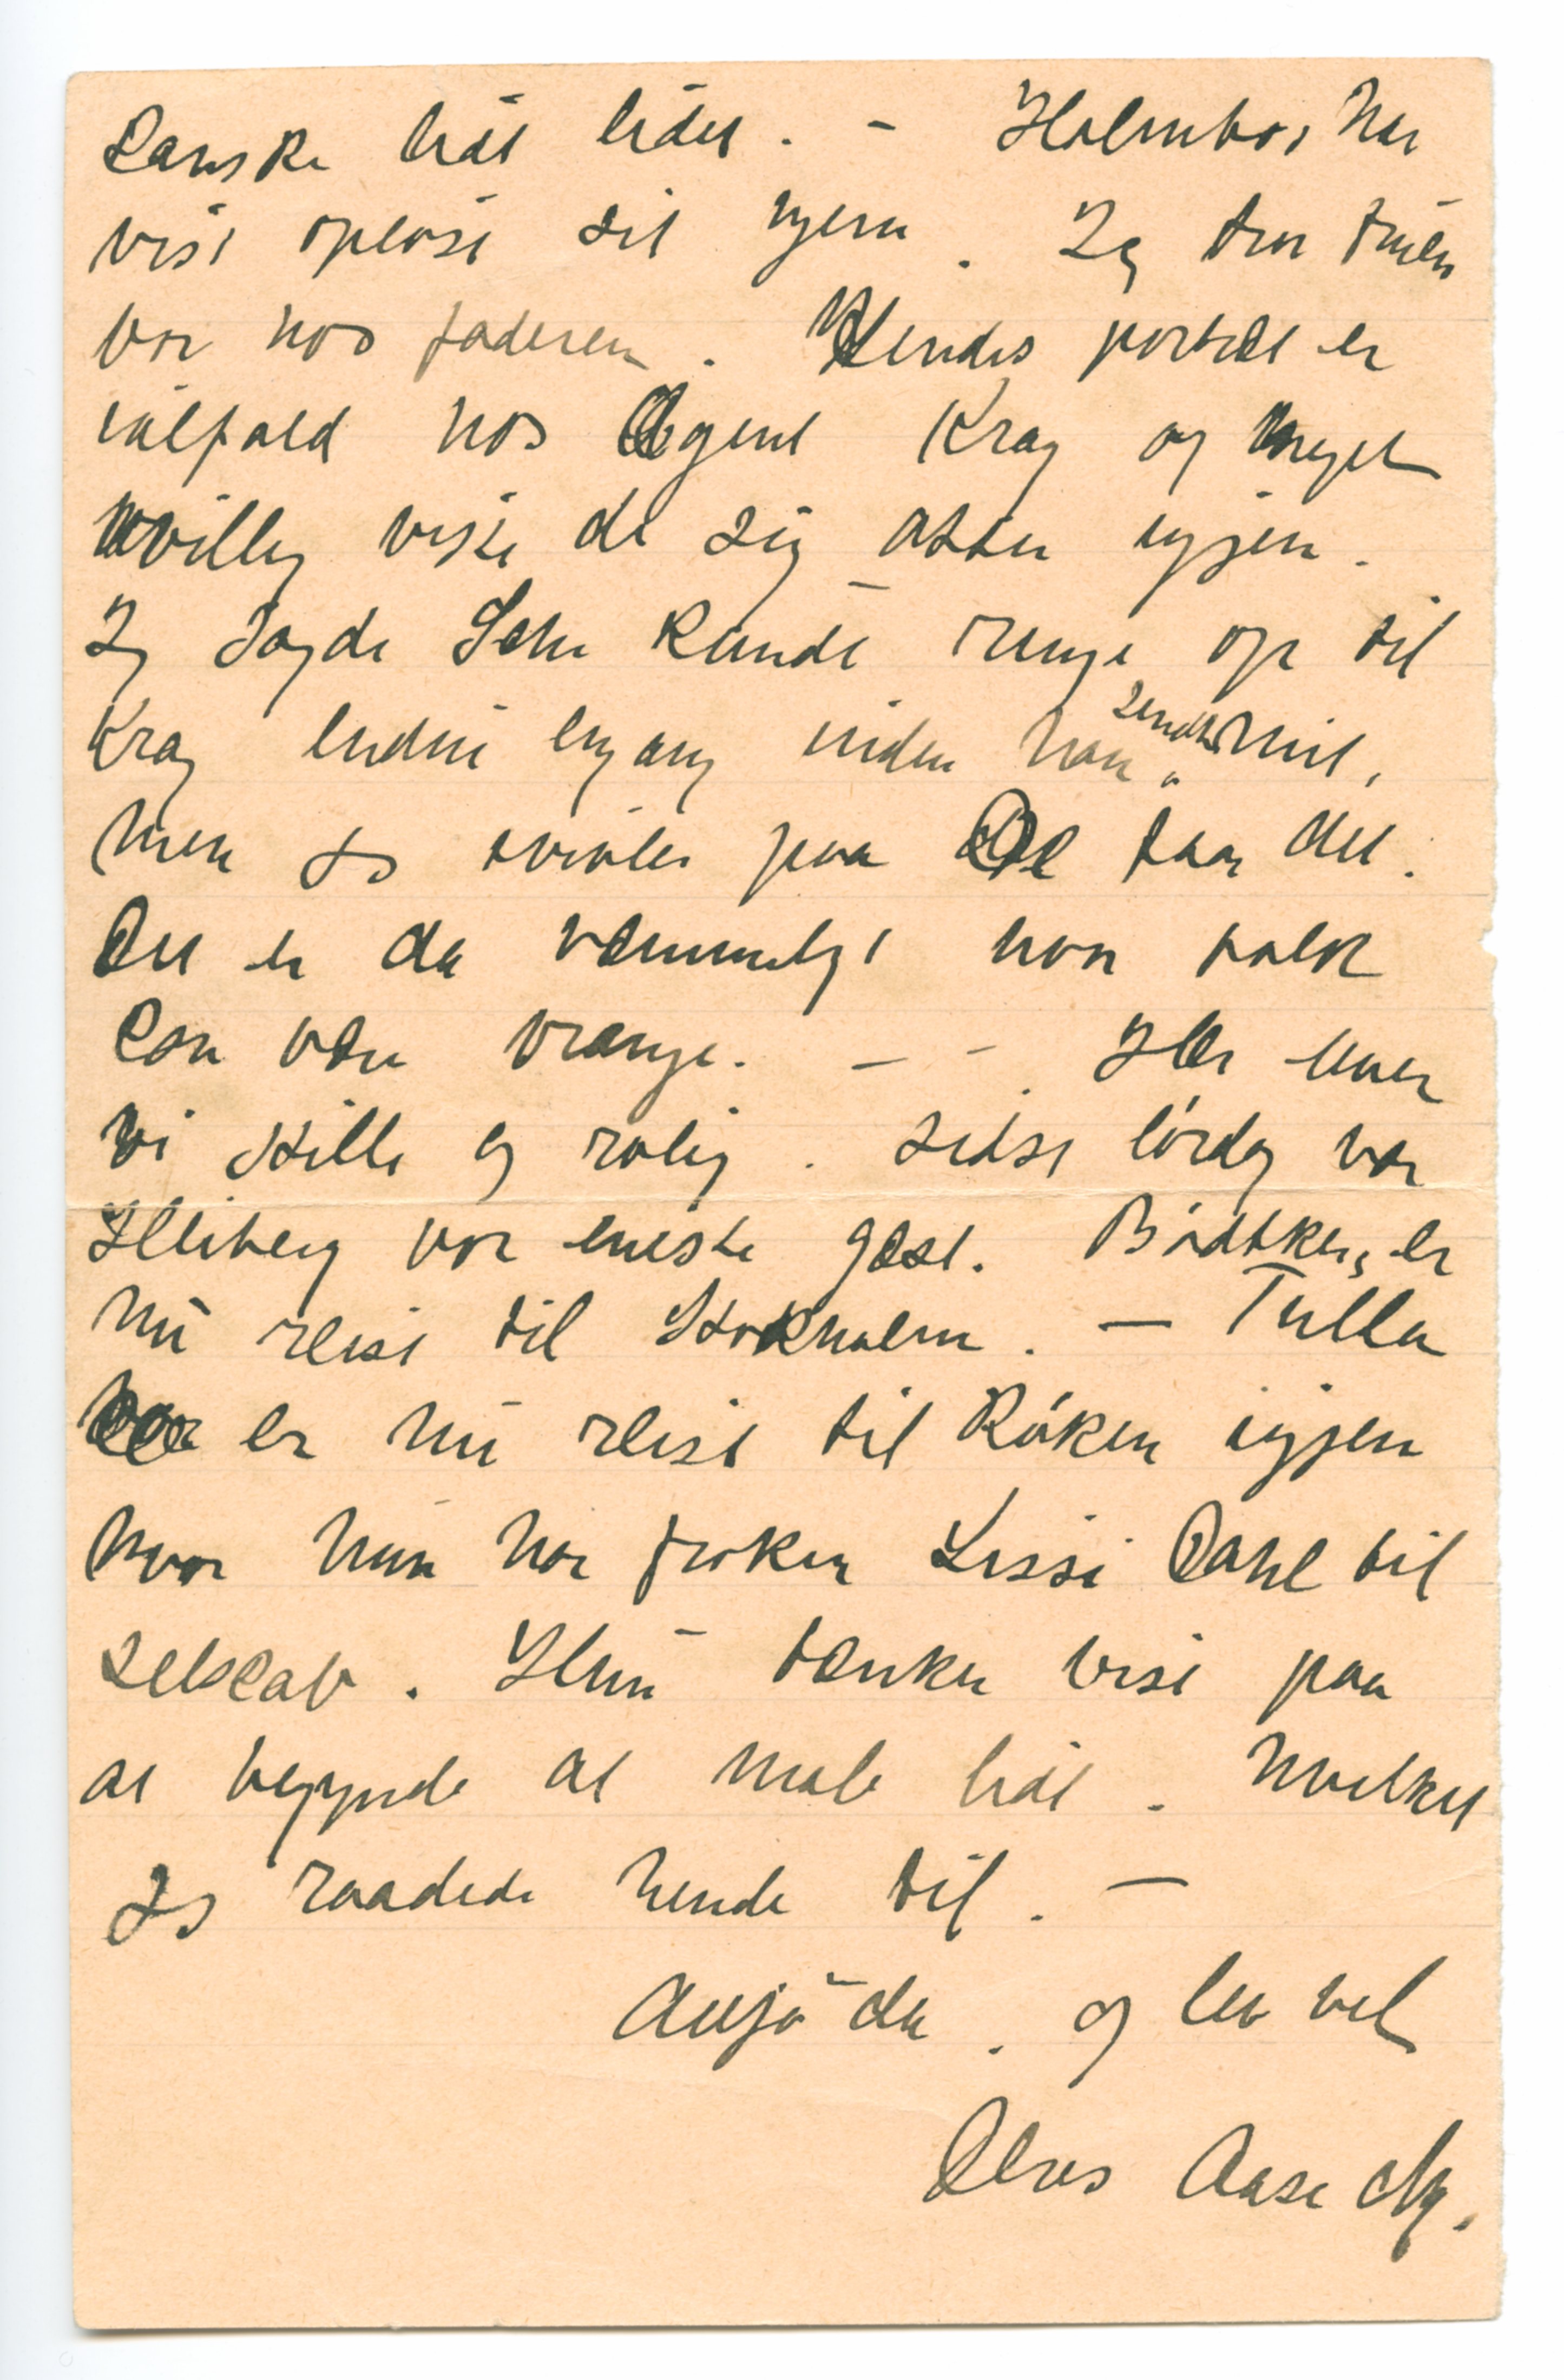 Kanske lidt lidet. – Holmboe har
vist opløst sit hjem. Jeg tror fruen
bor hos faderen. Hendes portræt er
ialfald hos Agent Krag og meget
uvillig viste de sig atter igjen. –
Jeg sagde Sehr kunde ringe op til
Krag endnu engang inden han sendte hit,
men jeg tviler paa De faar det.
Det er da væmmeligt hvor folk
kan være vrange. – – Her lever
vi stille og rolig. Sidste lørdag var
Heiberg vor eneste gæst. Bødtkers er
nu reist til Stokholm. – Tulla
er nu reist til Røken igjen
hvor hun har frøken Lissi Dahl til
selskab. Hun tænker vist paa
at begynde at male lidt. Hvilket
jeg raadede hende til. –
Adjø da. og lev vel
Deres Aase N.